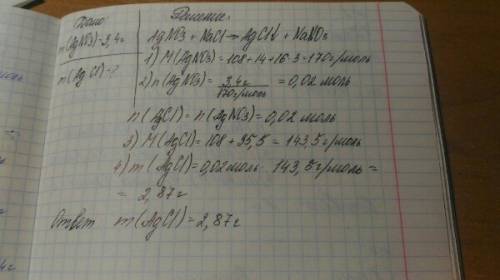 Дано
Решение.
m(AgNO3)=3,4г
m(AgCl)-?
AgNO3 + NaCl → AgCl↓ + NaNO3
1) M(AgNO3) = 108 + 14 + 16·3 = 170 г/моль
2) n(AgNO3) = 3,4г / 170 г/моль = 0,02 моль
n(AgCl) = n(AgNO3) = 0,02 моль
3) M(AgCl) = 108 + 35,5 = 143,5 г/моль
4) m(AgCl) = 0,02 моль · 143,5 г/моль =
= 2,87г
Ответ m(AgCl) = 2,87г